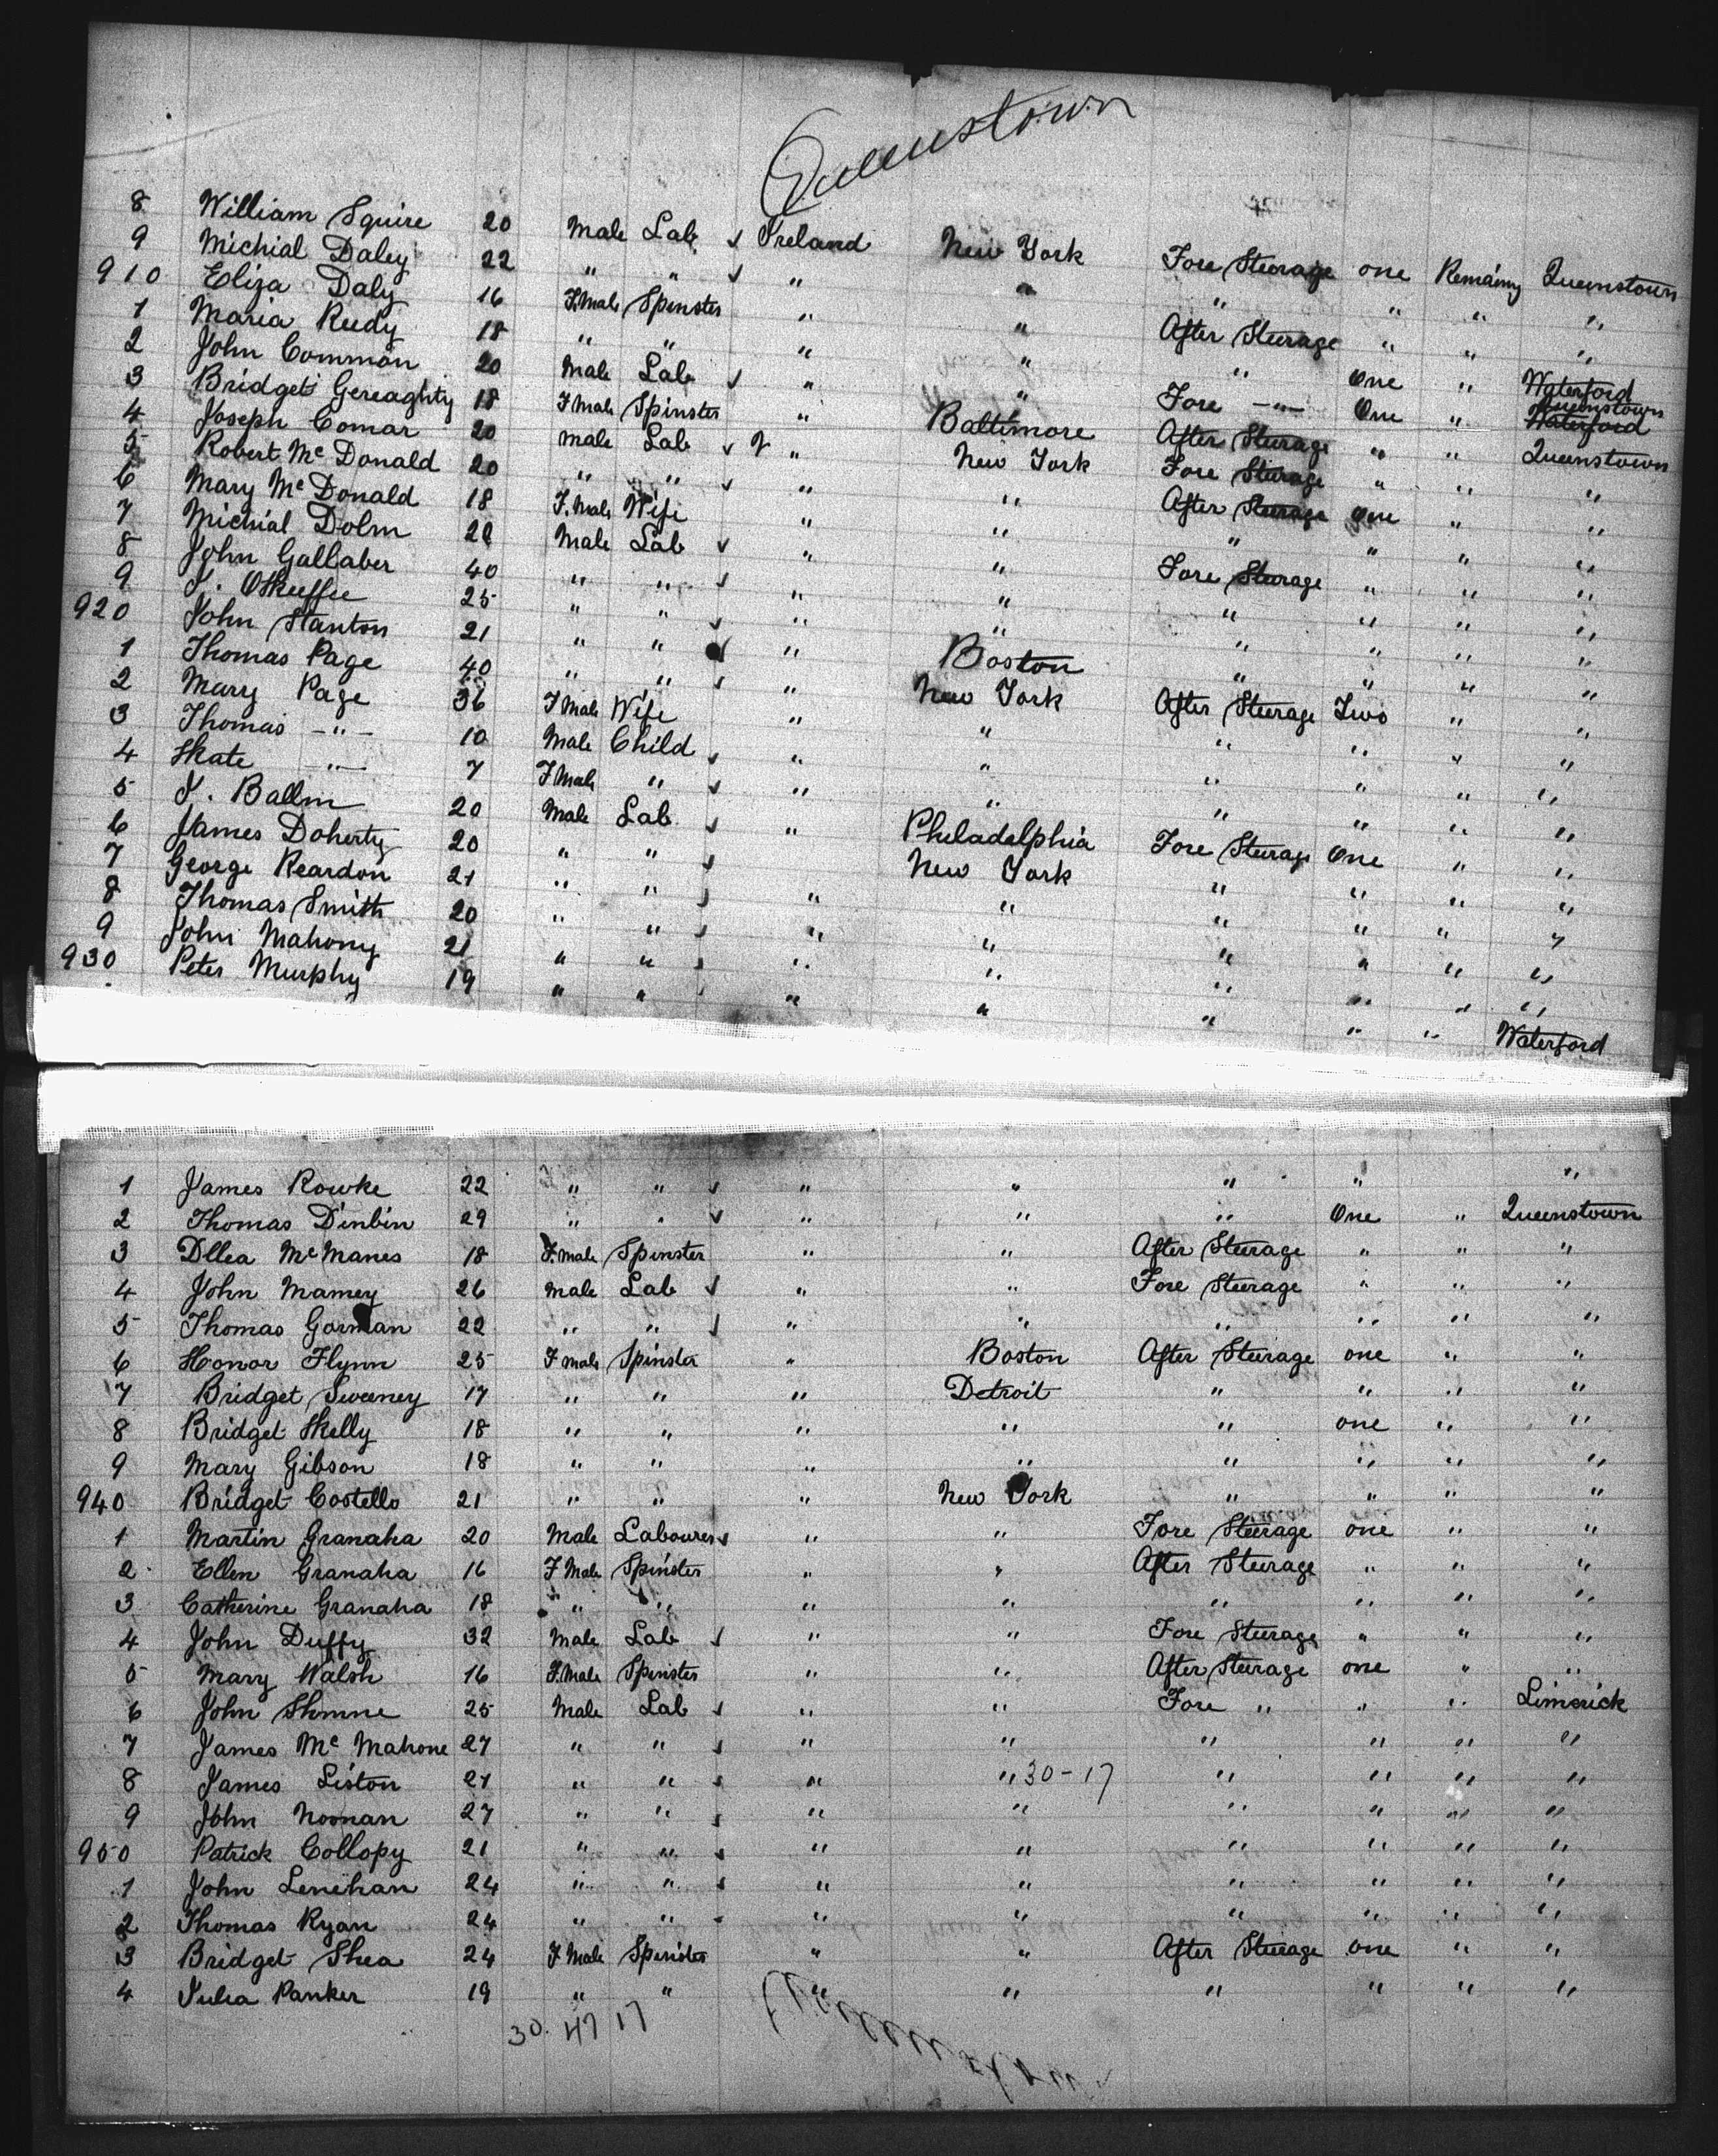 Queenstown
8 William Squire 20 Male Lab ✓ Ireland New York Fore Steerage one Remaining Queenstown
9 Michial Daley 22 " " ✓ " " " " " "
910 Eliza Daly 16 F.Male Spinster " " After Steerage " " "
1 Maria Reedy 18 " " " " " One " Waterford
2 John Common 20 Male Lab ✓ " " Fore -"- One " Queenstown Waterford
3 Bridget Gereaghty 18 F Male Spinster " Baltimore After Steerage " " Queenstown
4 Joseph Comar 20 Male Lab ✓ " New York Fore Steerage " " "
5 Robert Mc Donald 20 " " ✓ " " After Steerage One " "
6 Mary Mc Donald 18 F. Male Wife " " " " " "
7 Michial Dolm 28 Male Lab ✓ " " Fore Steerage " " "
8 John Gallaber 40 " " ✓ " " " " " "
9 J. OKeeffee 25 " " ✓ " " " " " "
920 John Stanton 21 " " ✓ " Boston " " " "
1 Thomas Page 40 " " ✓ " New York After Steerage Two " "
2 Mary Page 36 F Male Wife " " " " " "
3 Thomas -"- 10 Male Child ✓ " " " " " "
4 Kate -"- 7 F Male " ✓ " " " " " "
5 J. Ballm 20 Male Lab ✓ " Philadelphia Fore Steerage One " "
6 James Doherty 20 " " ✓ New York " " " "
7 George Reardon 21 " " ✓ " " " " " "
8 Thomas Smith 20 " " ✓ " " " " " "
9 John Mahony 21 " " ✓ " " " " " "
930 Peter Murphy 19 " " ✓ " " " " " Waterford
1 James Rowke 22 " " ✓ " " " " "
2 Thomas Dinbin 29 " " ✓ " " " One " Queenstown
3 Dllea Mc Manes 18 F.male Spinster " " After Steerage " " "
4 John Mamey 26 Male Lab ✓ " " Fore Steerage " " "
5 Thomas Gorman 22 " " ✓ " " " " " "
6 Honor Flynn 25 F male Spinster " Boston After Steerage one " "
7 Bridget Sweeney 17 " " " Detroit " " " "
8 Bridget Kelly 18 " " " " " one " "
9 Mary Gibson 18 " " " " " " " "
940 Bridget Costello 21 " " " New York " " " "
1 Martin Granaha 20 Male Labourer ✓ " " Fore Steerage one " "
2 Ellen Granaha 16 F Male Spinster " " After Steerage " " "
3 Catherine Granaha 18 " " " " " " " "
4 John Duffy 32 Male Lab ✓ " " Fore Steerage " " "
5 Mary Walsh 16 F.Male Spinster " " After Steerage one " "
6 John Shmne 25 Male Lab ✓ " " Fore " " " Limerick
7 James Mc Mahone 27 " " ✓ " " " " " "
8 James Liston 21 " " ✓ " " 30-17 " " " "
9 John Noonan 27 " " ✓ " " " " " "
950 Patrick Collopy 21 " " ✓ " " " " " "
1 John Lenihan 24 " " ✓ " " " " " "
2 Thomas Ryan 24 " " - " " " " " "
3 Bridget Shea 24 F Male Spinster " " After Steerage one " "
4 Julia Panker 19 " " " " " " " "
30. 47 17 Queenstown